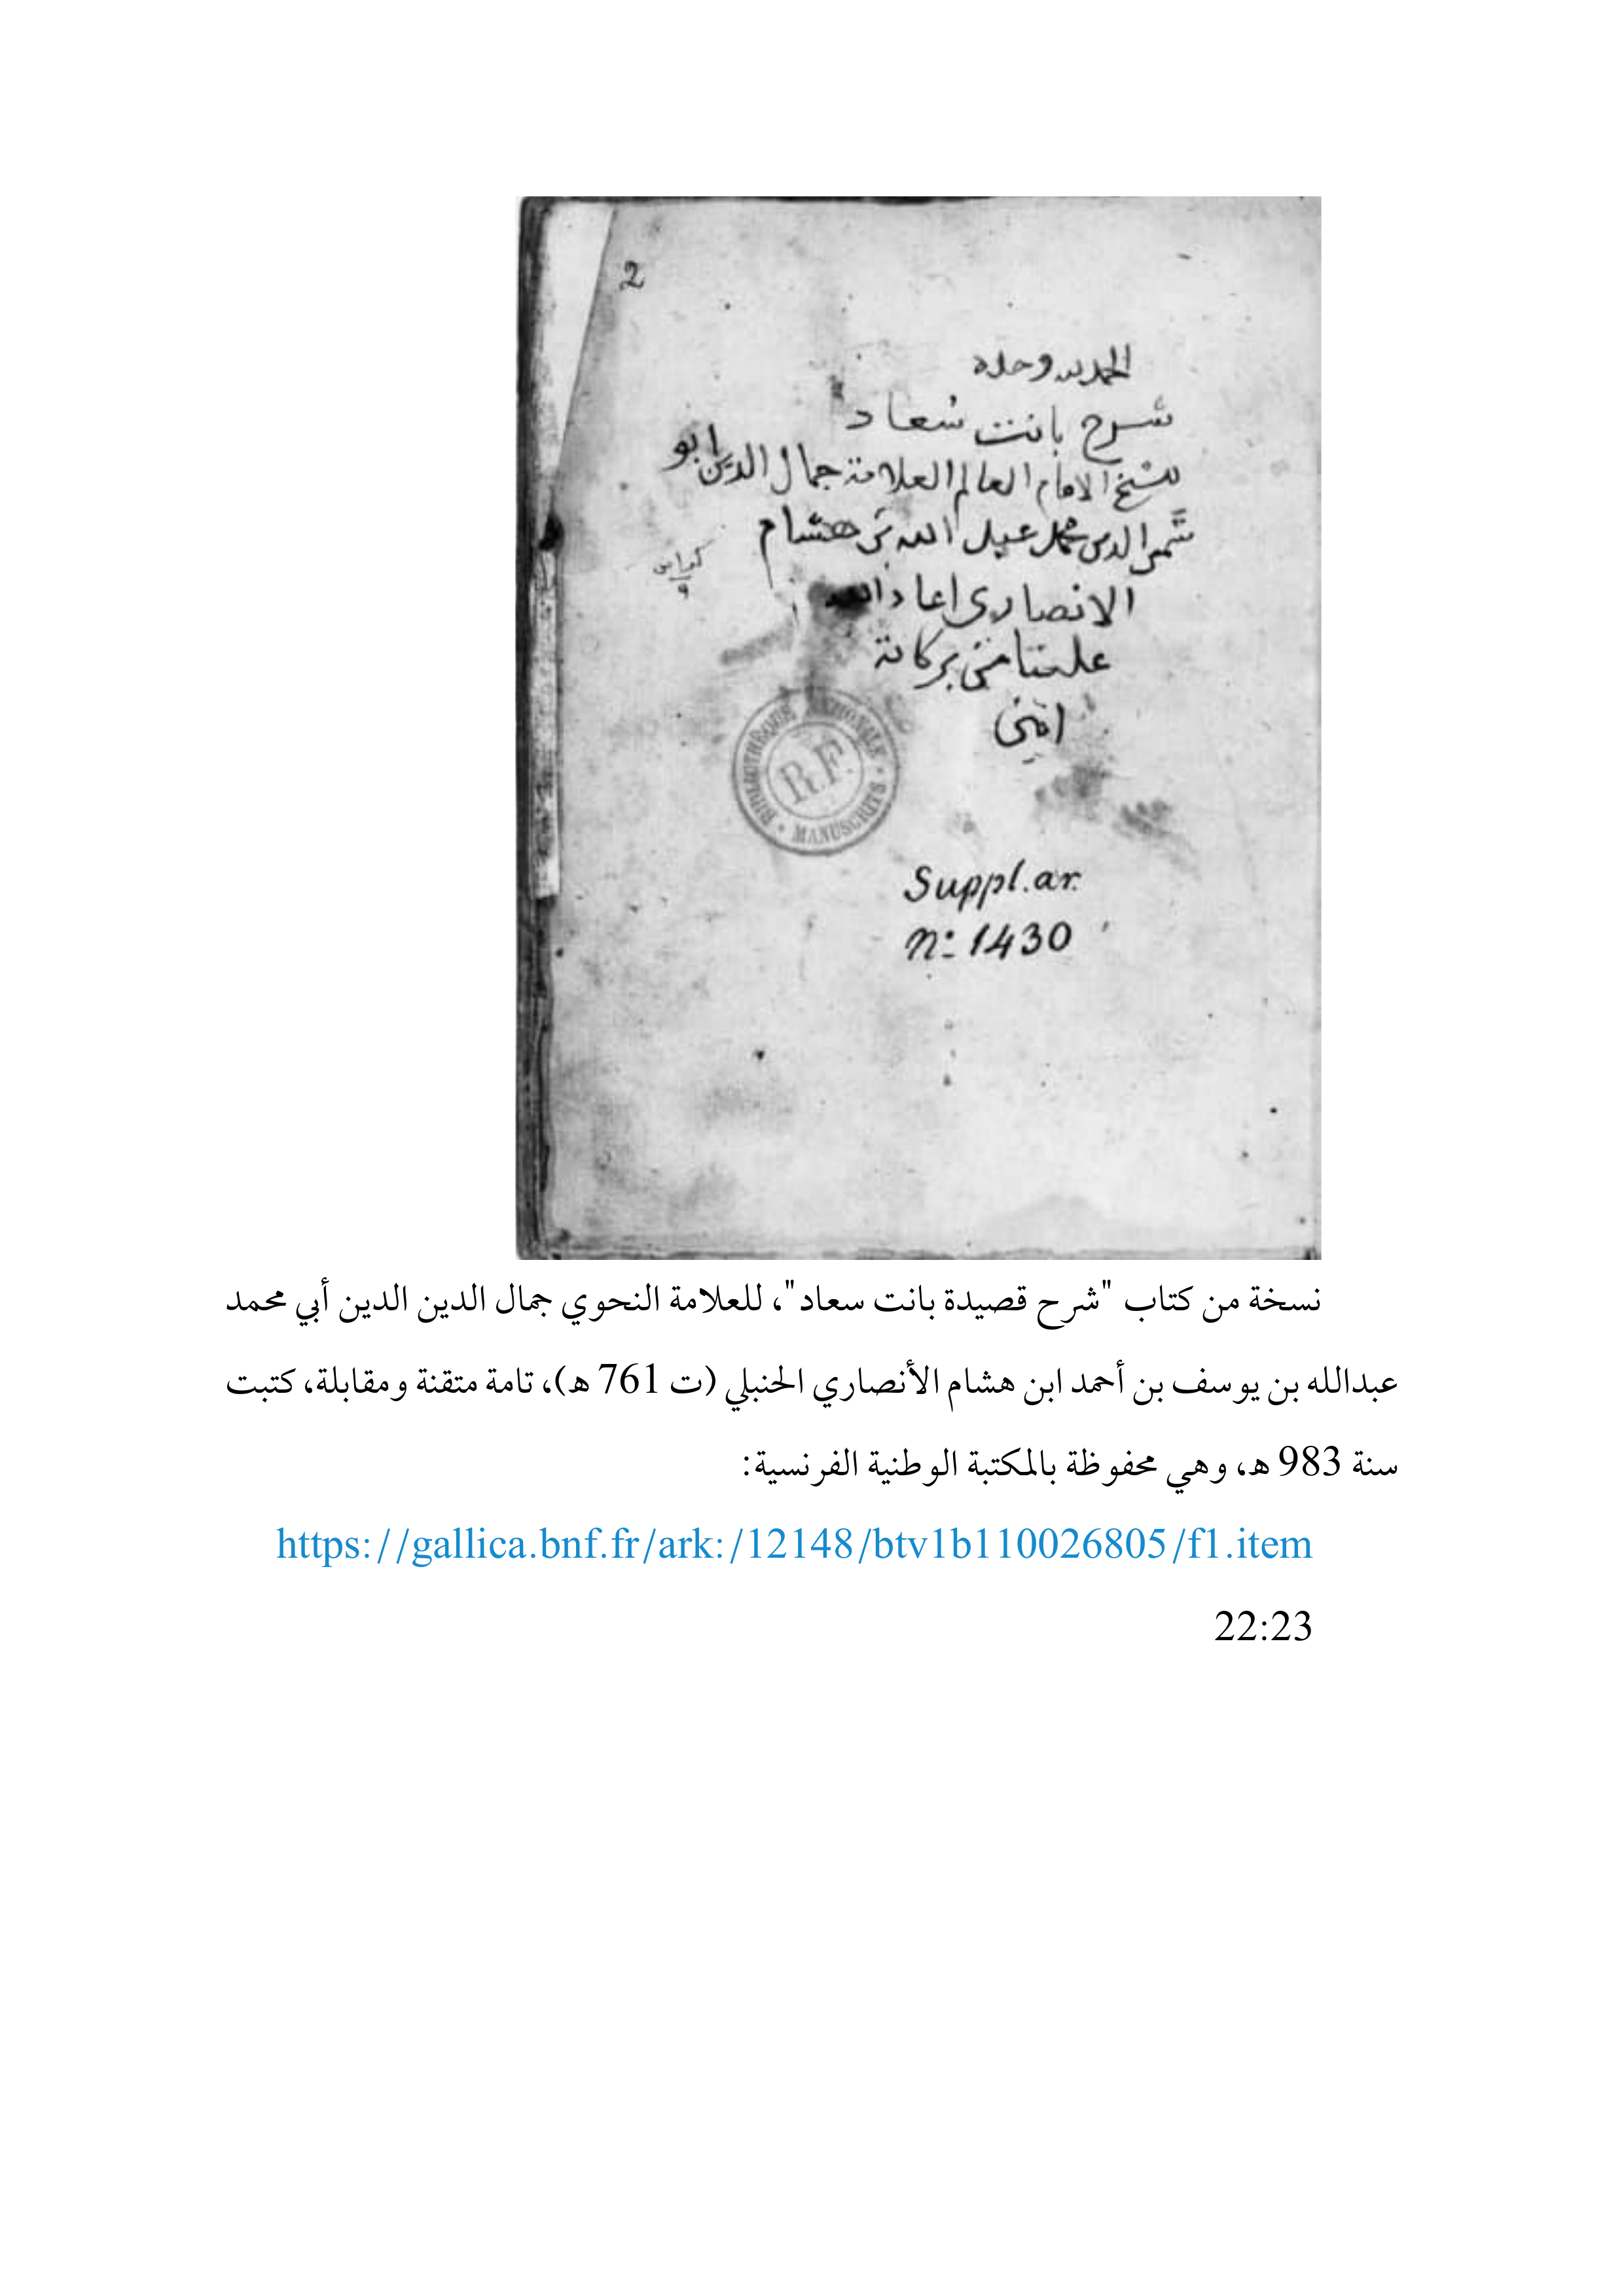 2
الحمد لله وحده
شرح بانت سعاد
للشيخ الامام العالم العلامة جمال الدين ابو
شمس الدين محمد عبد الله بن هشام
الانصارى اعاد الله
علينا من بركاته
امين
كراس
٩
BIBLIOTHÈQUE NATIONALE
R.F.
MANUSCRITS
Suppl. ar.
nº 1430
نسخة من كتاب "شرح قصيدة بانت سعاد"، للعلامة النحوي جمال الدين الدين أبي محمد
عبدالله بن يوسف بن أحمد ابن هشام الأنصاري الحنبلي (ت 761 ه)، تامة متقنة ومقابلة، كتبت
سنة 983 ه، وهي محفوظة بالمكتبة الوطنية الفرنسية:
https://gallica.bnf.fr/ark:/12148/btv1b110026805/f1.item
22:23